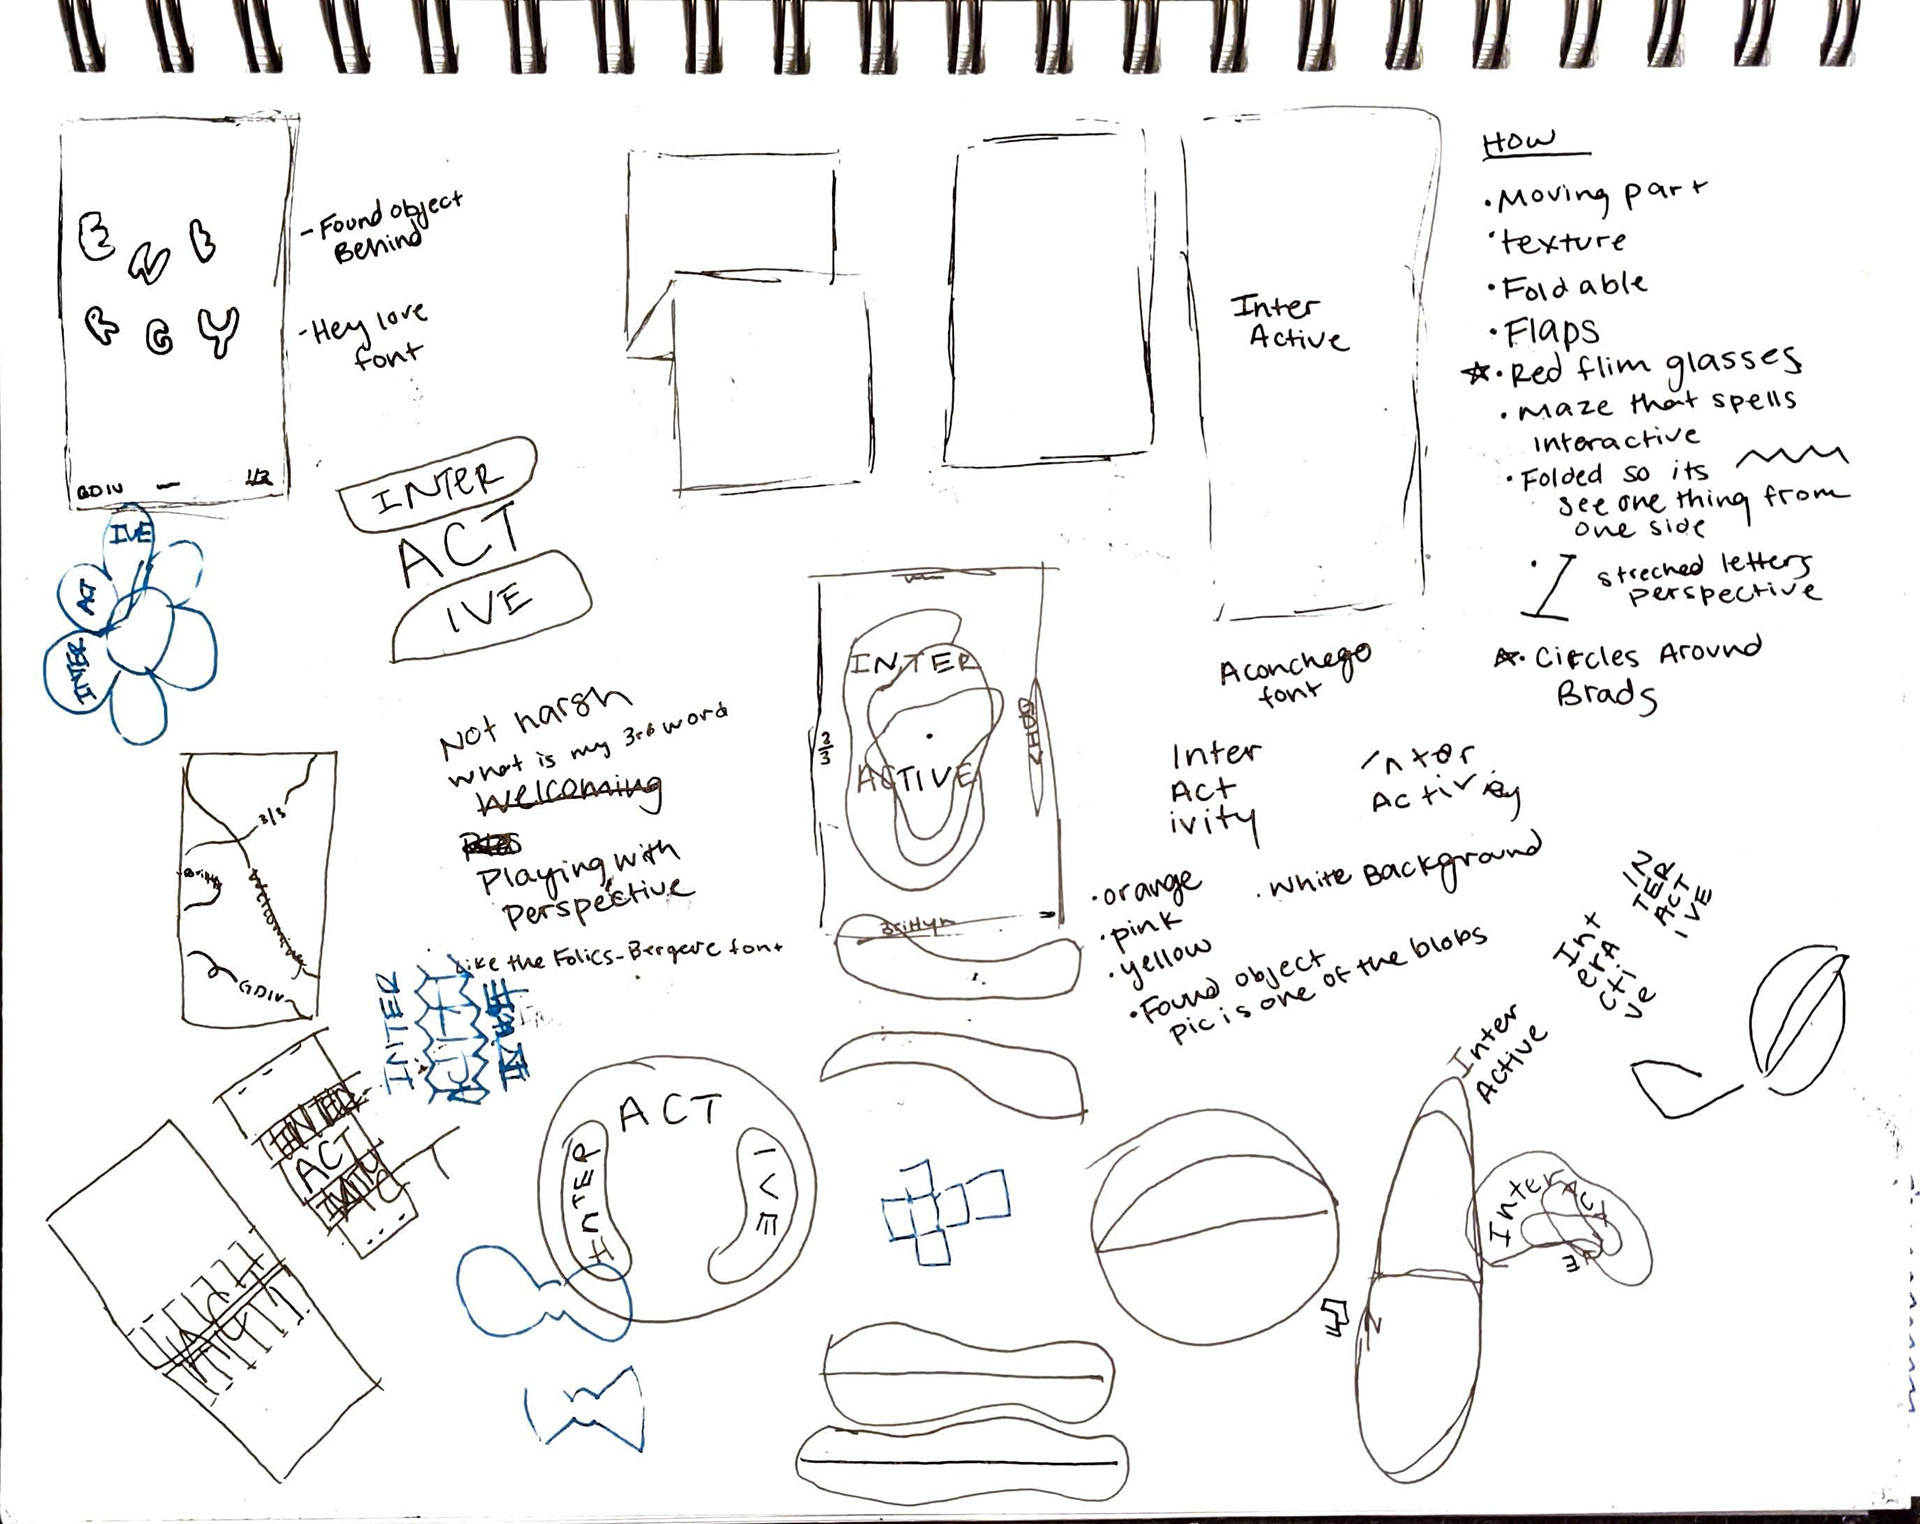 E N E
R G Y
GDIV
1/3
- Found object
Behind
- Hey love
font
Inter
Active
HOW
• Moving part
• texture
• Foldable
• Flaps
• Red flim glasses
• Maze that spells
interactive
• Folded so its
see one thing from
one side
• I streched letters
perspective
• Circles Around
Brads
INTER
ACT
IVE
IVE
ACT
INTER
Aconchego
font
INTER
ACTIVE
3/3
Brittyn
Not harsh
what is my 3rd word
Welcoming
Playing with
Perspective
like the Folics-Bergere font
3/3
GDIV
Inter
Act
ivity
inter
Activity
• orange
• pink
• yellow
• White Background
• Found object
pic is one of the blobs
IN
TER
ACT
IVE
Int
erA
cti
ve
Inter
Active
INTER
INTER
ACT
IVITY
ACT
INTER
IVE
Inter
ACT